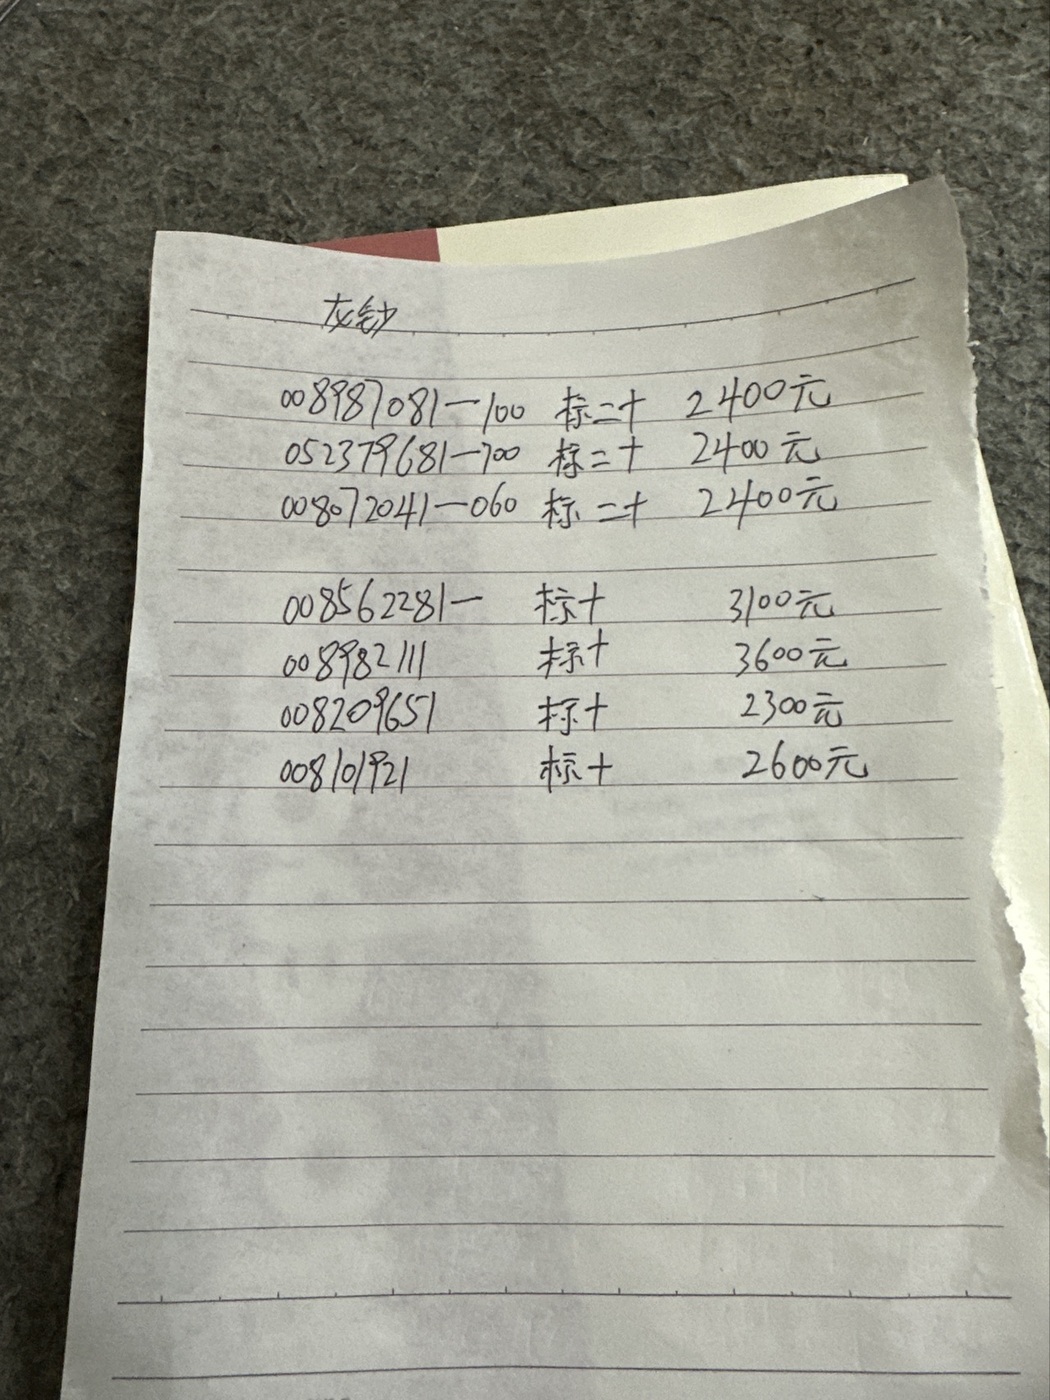 灰钞
008987081一100 标二十 2400元
052379681一700 标二十 2400元
008072041一060 标二十 2400元
008562281一 标十 3100元
008982111 标十 3600元
008209651 标十 2300元
008101921 标十 2600元